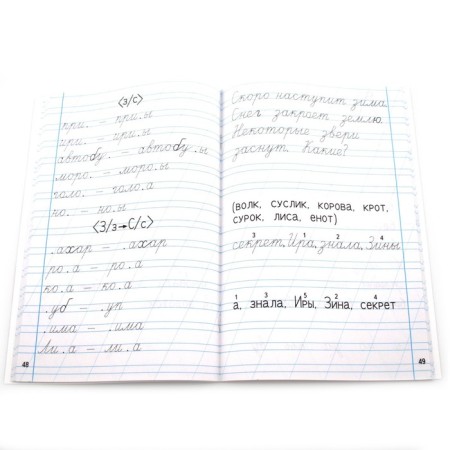 ⟨З/С⟩
при. – при.ы
ири. – ири.ы
автобу. – автобу.ы
моро. – моро.ы
голо. – голо.а
но. – но.ы
⟨З/з→С/с⟩
.ахар – .ахар
ро.а – ро.а
ко.а – ко.а
.уб – .уп
.има – .има
Ли.а – ли.а
48
Скоро наступит зима.
Снег закроет землю.
Некоторые звери
заснут. Какие?
(ВОЛК, СУСЛИК, КОРОВА, КРОТ,
СУРОК, ЛИСА, ЕНОТ)
3 1 2 4
секрет, Ира, знала, Зины
1 3 5 2 4
а, знала, Иры, Зина, секрет
49